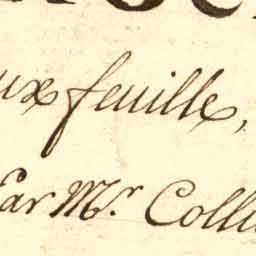 ux feuille,
Par Mr. Colli